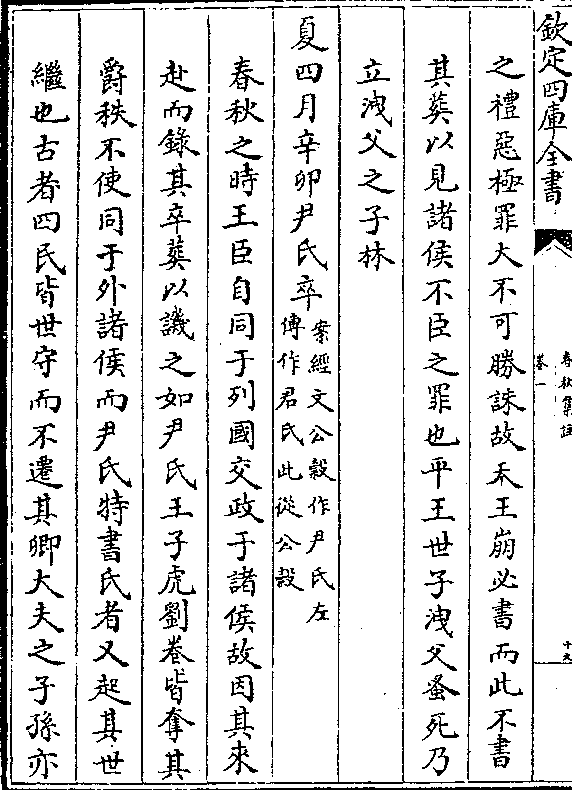 欽定四庫全書
春秋集註
卷一
十九
之禮惡極罪大不可勝誅故天王崩必書而此不書
其葬以見諸侯不臣之罪也平王世子洩父蚤死乃
立洩父之子林
夏四月辛卯尹氏卒案經文公穀作尹氏左
傳作君氏此從公穀
春秋之時王臣自同于列國交政于諸侯故因其來
赴而錄其卒葬以譏之如尹氏王子虎劉卷皆奪其
爵秩不使同于外諸侯而尹氏特書氏者又起其世
繼也古者四民皆世守而不遷其卿大夫之子孫亦